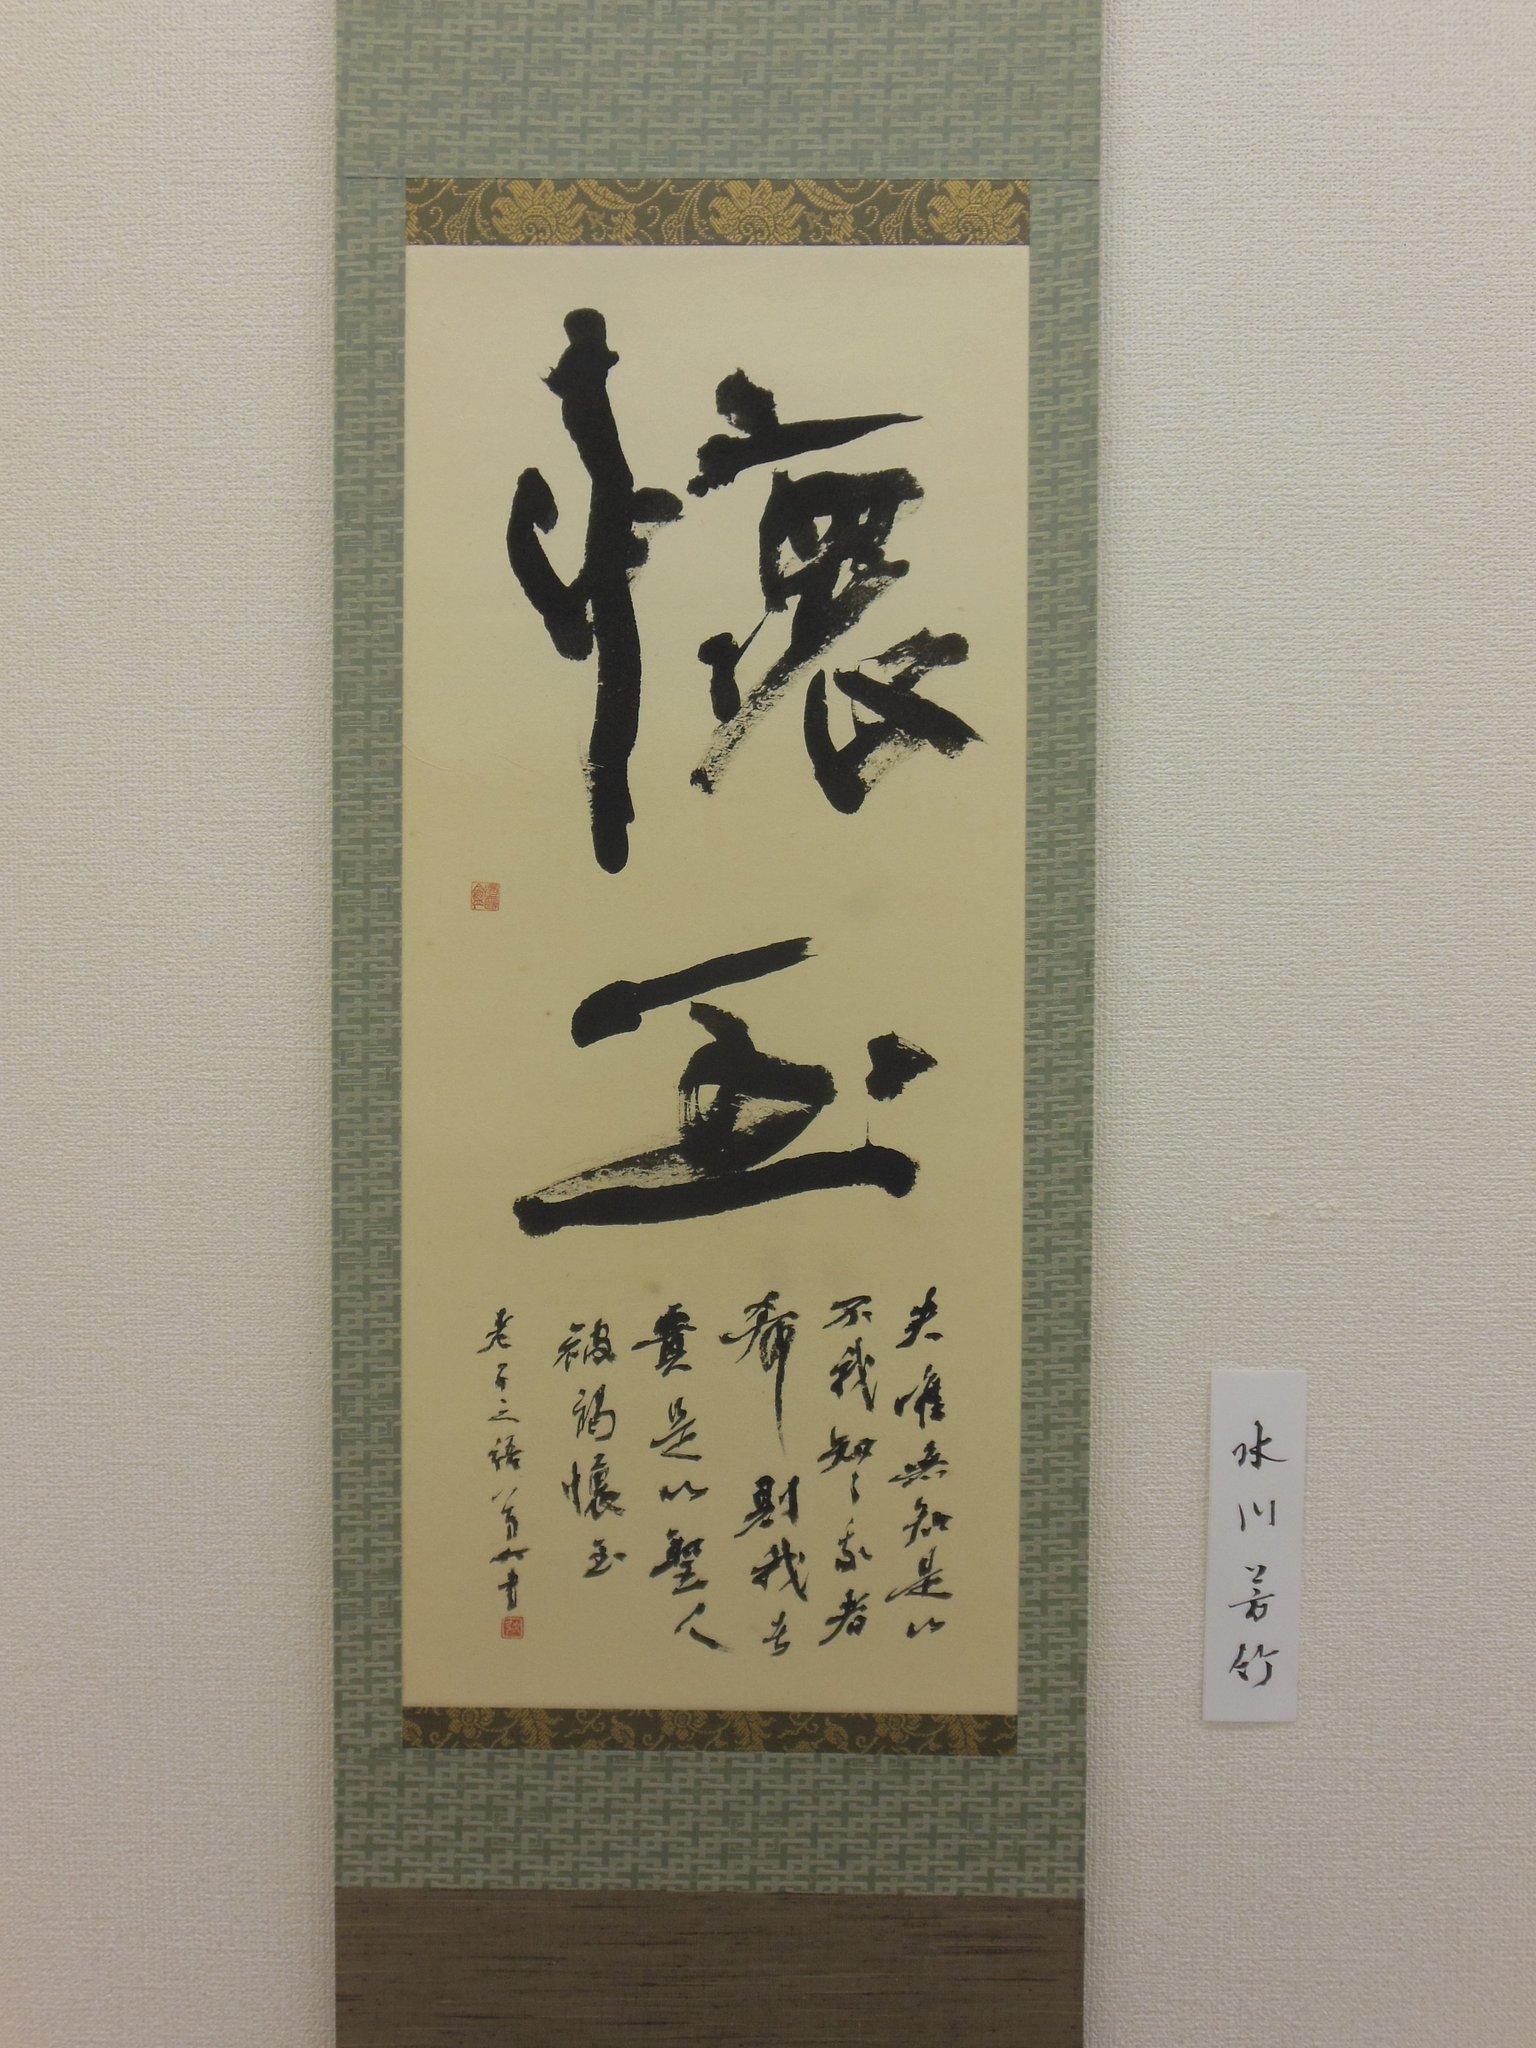 懐玉
夫唯無知是以
不我知々我者
希則我者
貴是以聖人
被褐懐玉
老子之語 芳竹書
水川芳竹